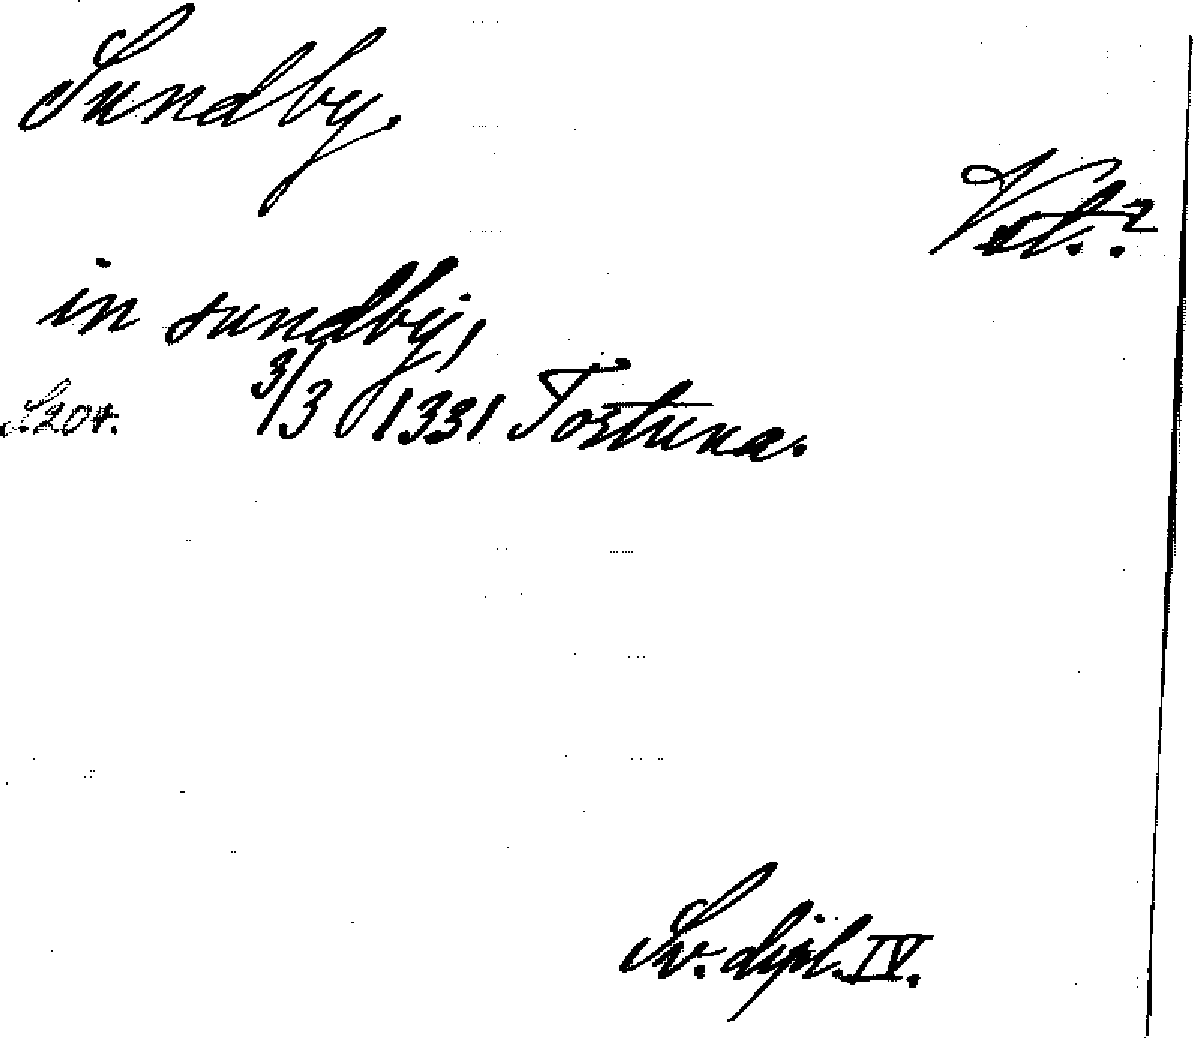 Sundby.
Vst. ?
in sundby,
S. 204. 3/3 1331 Tortuna.
Sv. dipl. IV.